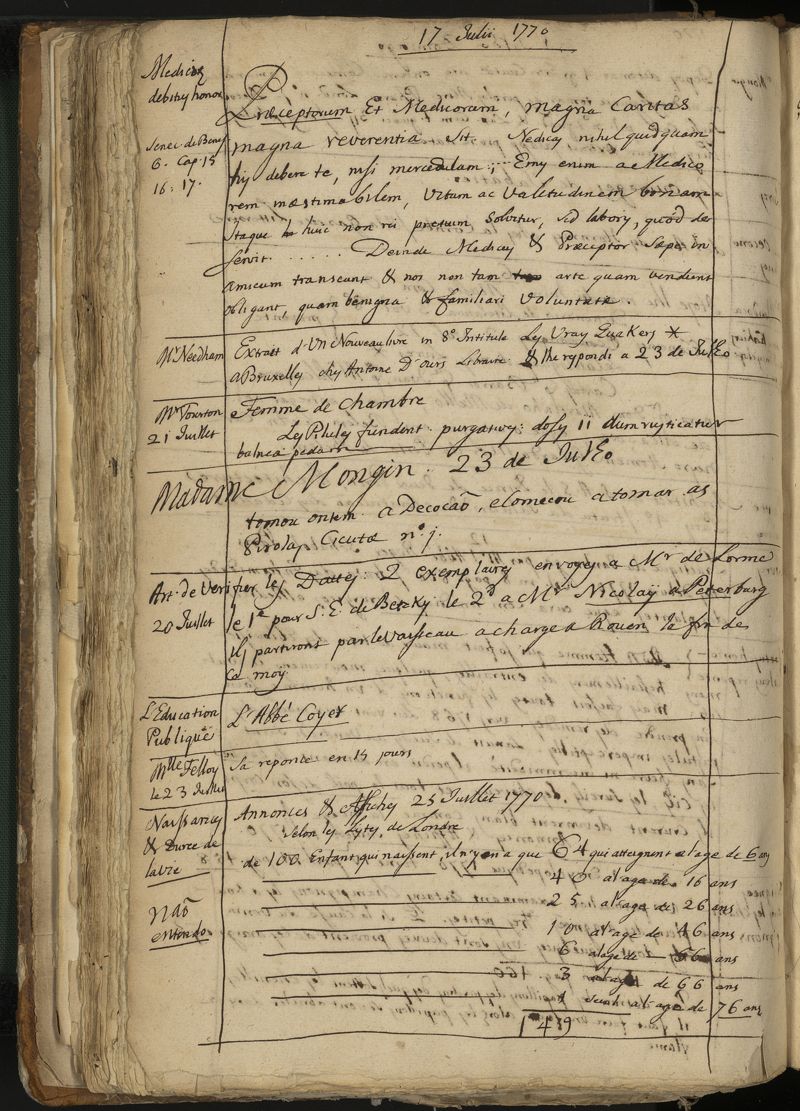 17 Julii 1770
Medicis
debitus honor
Præceptorum Et Medicorum, magna Caritas
Senec. de Benef.
6. Cap. 15
16. 17.
magna reverentia sit. Medicis nihil quidquam
his debere te, nisi mercedulam; Emis enim a Medico
rem inæstimabilem, Vitam ac Valetudinem bonam
Itaque huic non rei pretium Solvitur, sed laboris, quod de
servit ...... Deinde Medicus & Præceptor Sæpe in
amicum transeunt & nos non tam arte quam vendunt
obligant, quam benigna & familiari Voluntate.
Mr Needham
Extrait d'Un Nouveau livre in 8º Intitulé Les Vray Quakers *
a Bruxelles ches Antoine D'ours Libraire & lhe respondi a 23 de Julho
Mr Tourton
21 Juillet
Femme de Chambre
Les Pilules fundent. purgatives: dosis ii dum rusticatur
balnea pedum
Madame Mongin. 23 de Julho
tomou ontem a Decocaõ, e Comecou a tomar as
Pirolas Cicutæ nº j.
Art de Verifier les Dates: 2 exemplaires envoyes a Mr de Lorme
20 Juillet
le 1r pour S. E. de Betzky le 2d a Mr Nicolaÿ a Peterburg
ils partiront par le Vaisseau a charge a Rouen la fin de
Ce moÿ
L'Education
Publique
L'Abbé Coyer
Mlle Felloy
le 23 Juillet
Sa reponse en 15 jours
Naissances
& Duree de
la vie
Annonces & Affiches 25 Juillet 1770.
Selon les Lystes de Londre
de 100. Enfant qui naissent, il n'y en a que 64 qui atteignent a l'age de 6 ans
40 a l'age de 16 ans
Naõ
entendo
25 a l'age de 26 ans
10 a l'age de 46 ans
6 a l'age de 56 ans
3 a l'age de 66 ans
1 a l'age de 76 ans
149